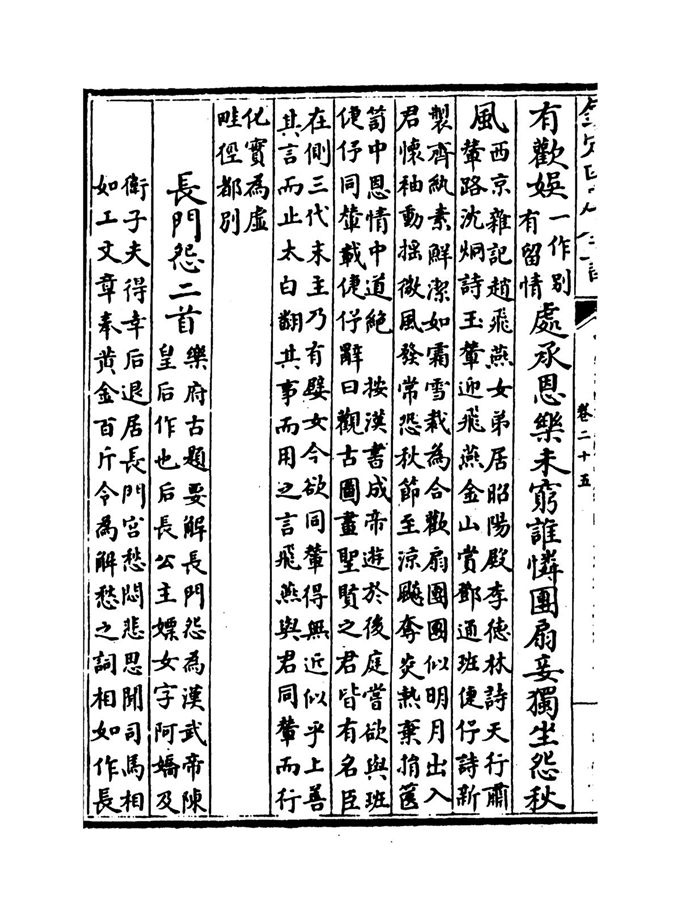 卷二十五
有歡娛一作别有留情處承恩樂未窮誰憐團扇妾獨坐怨秋
風西京雜記趙飛燕女弟居昭陽殿李德林詩天行肅
輦路沈烱詩玉輦迎飛燕金山賞鄧通班倢伃詩新
製齊紈素鮮潔如霜雪裁為合歡扇團團似明月出入
君懷袖動揺微風發常恐秋節至涼飈奪炎熱棄捐篋
笥中恩情中道絶 按漢書成帝遊於後庭嘗欲與班
倢伃同輦載倢伃辭曰觀古圖畫聖賢之君皆有名臣
在側三代末主乃有嬖女今欲同輦得無近似乎上善
其言而止太白翻其事而用之言飛燕與君同輦而行
化實為虛
畦徑都别
長門怨二首樂府古題要解長門怨為漢武帝陳
皇后作也后長公主嫖女字阿嬌及
衛子夫得幸后退居長門宫愁悶悲思聞司馬相
如工文章奉黄金百斤令為解愁之詞相如作長